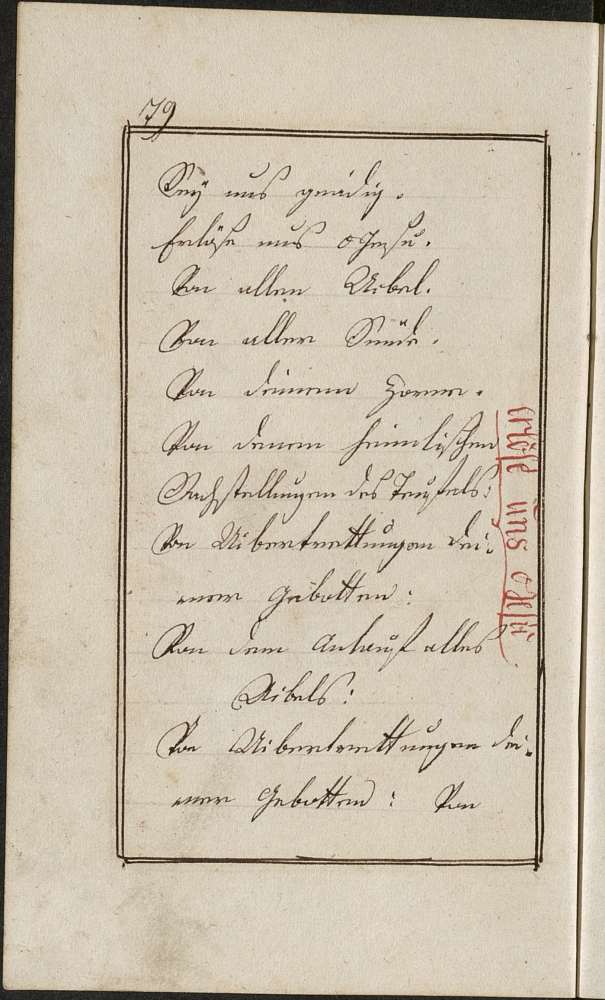 79
Sey uns gnädig.
Erlöse uns o Jesu.
Von allen Uebel.
Von aller Sünde.
Von deinem Zorne.
Von denen heimlichen
Nachstellungen des Teufels:
Von Uibertrettungen dei¬
ner Gebotten:
Von dem Anlauf alles
Uibels:
Von Uibertrettungen dei¬
ner Gebotten: Von
erlöse uns o Jesu